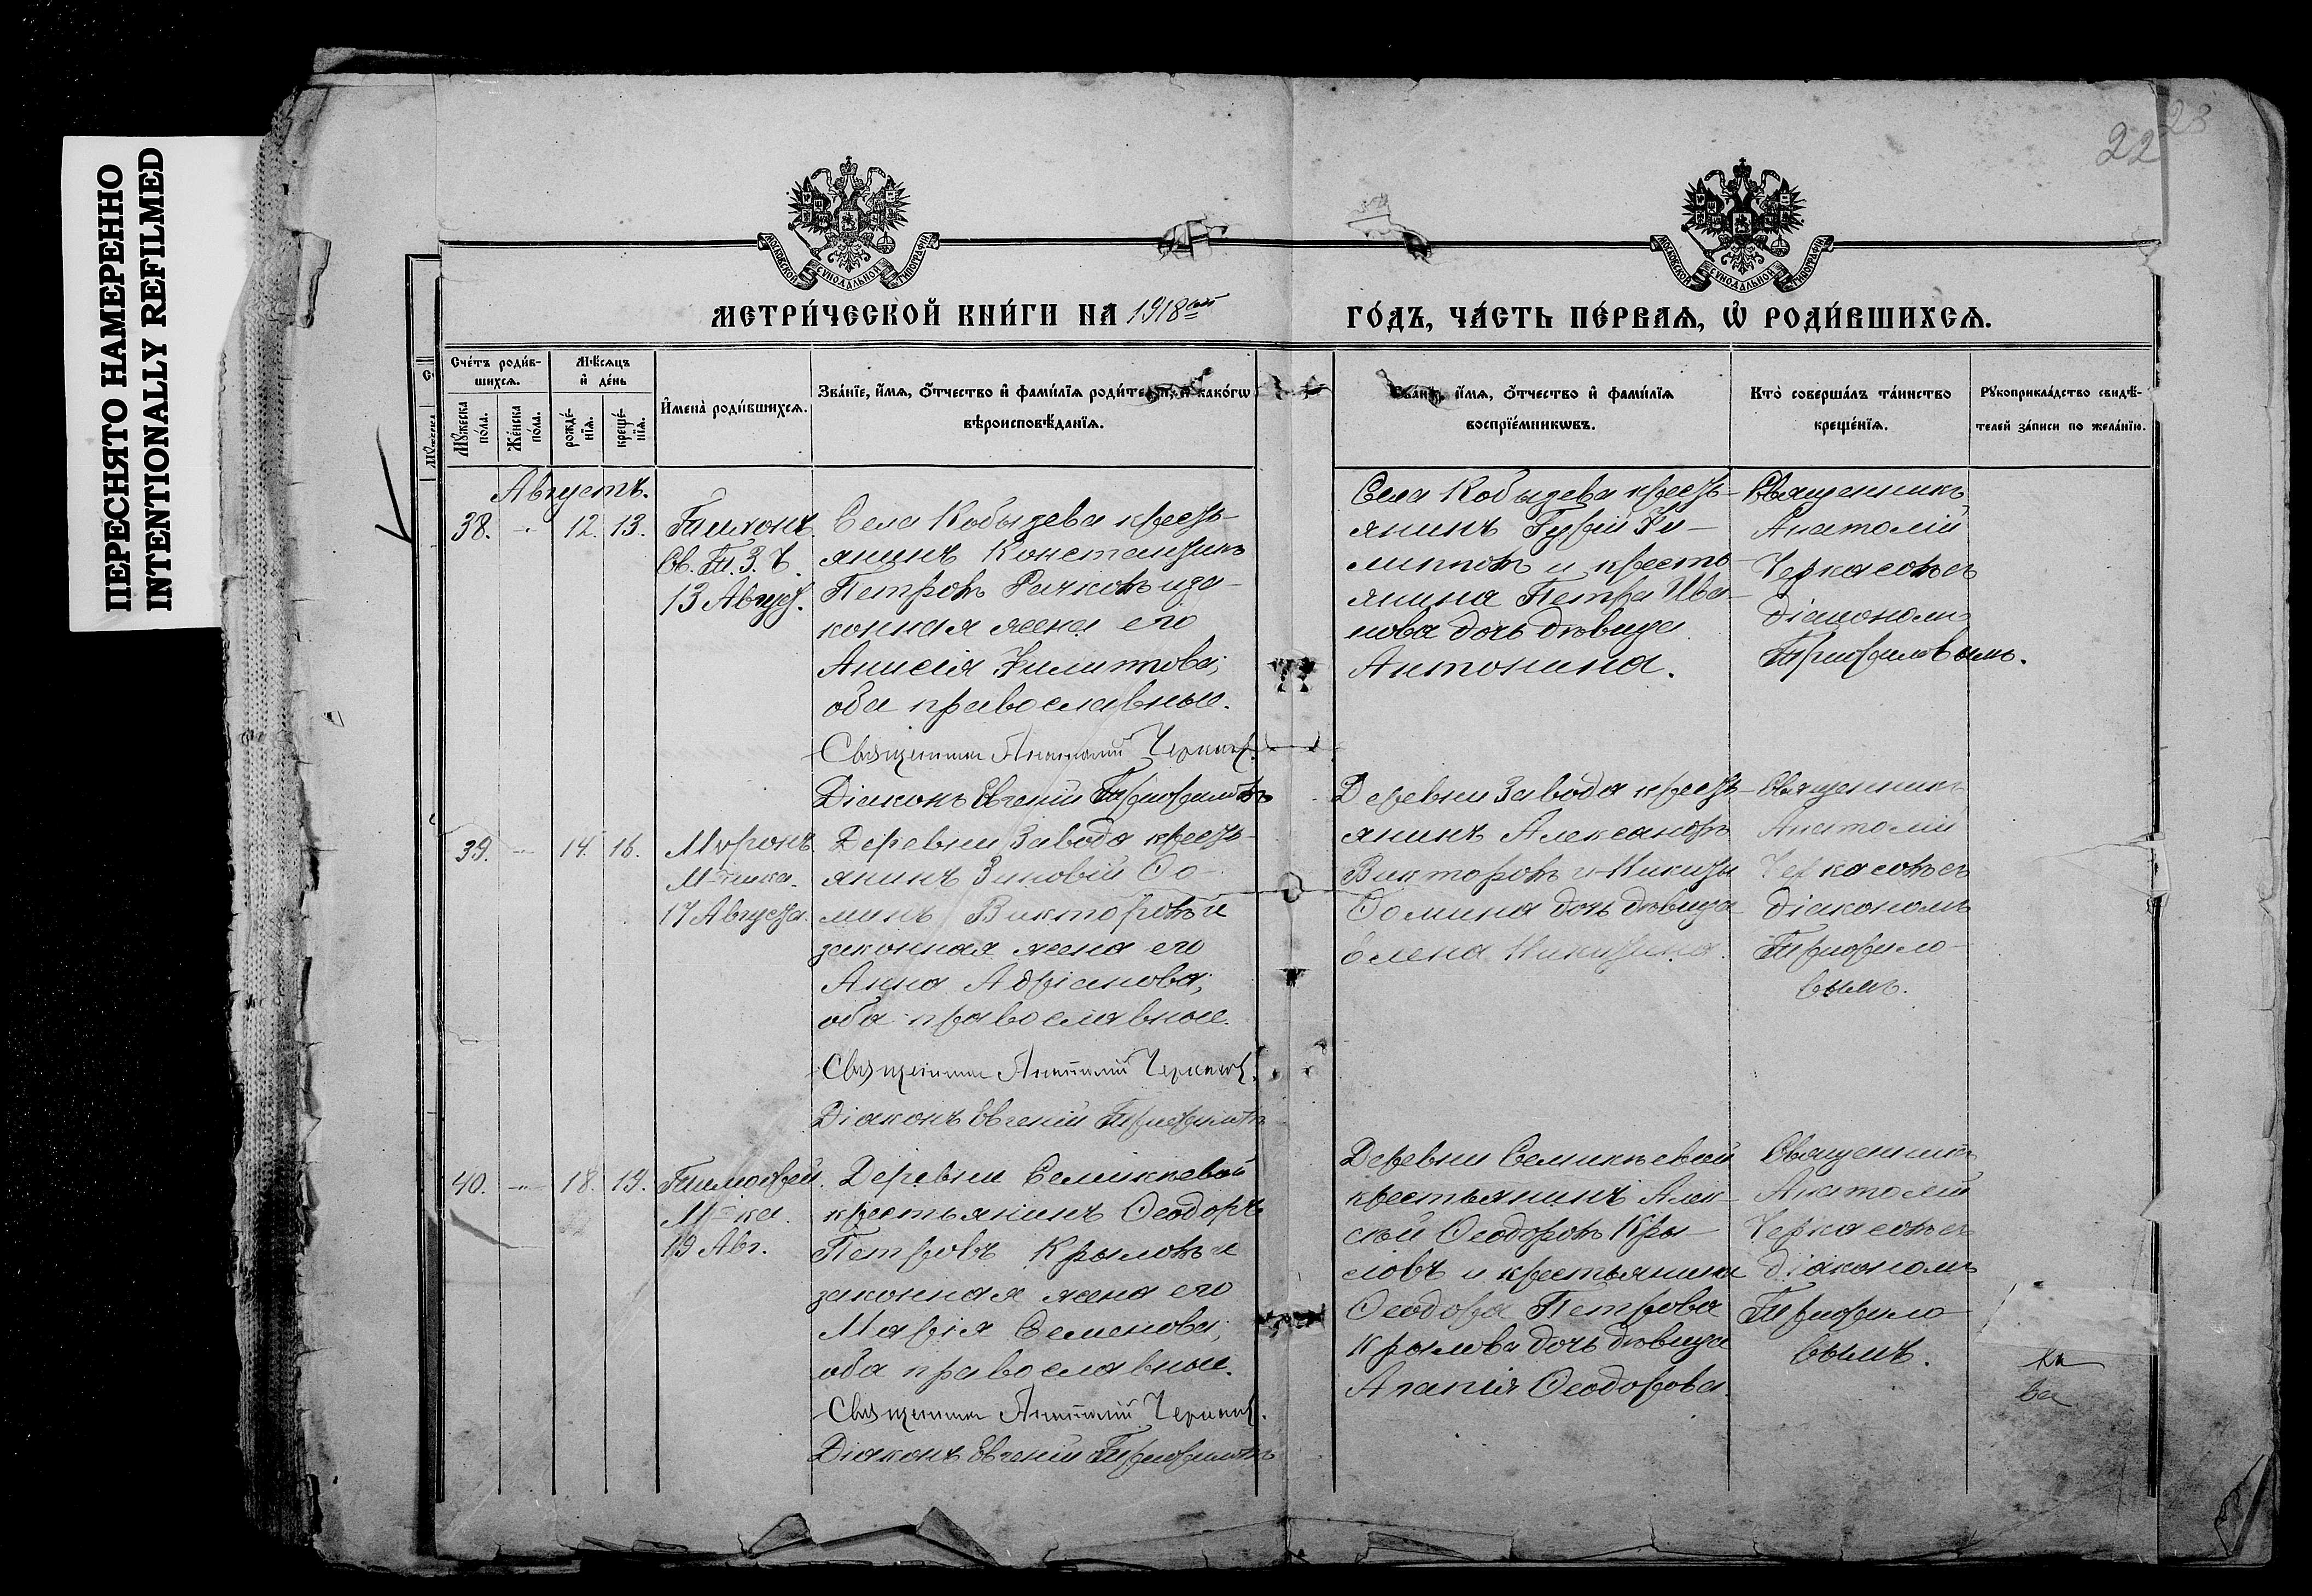 ПЕРЕСНЯТО НАМЕРЕННО
INTENTIONALLY REFILMED
22
23
МОСКОВСКОЙ СѴНОДАЛЬНОЙ ТИПОГРАФІИ
МОСКОВСКОЙ СѴНОДАЛЬНОЙ ТИПОГРАФІИ
МЕТРИ́ЧЕСКОЙ КНИ́ГИ НА 1918ый
ГО́ДЪ, ЧА́СТЬ ПЕ́РВАѦ, Ѡ҆ РОДИ́ВШИХСѦ.
Сче́тъ роди́в-
шихсѧ.
Мѣ́сѧцъ
и҆ де́нь
Мꙋ́жеска
по́ла.
Же́нска
по́ла.
рожде́-
нїѧ.
креще́-
нїѧ.
И҆мена̀ роди́вшихсѧ.
Зва́нїе, и҆́мѧ, ѻ҆́тчество и҆ фами́лїѧ роди́телей, и҆ како́гѡ
вѣроисповѣ́данїѧ.
Зва́нїе, и҆́мѧ, ѻ҆́тчество и҆ фами́лїѧ
воспрїе́мникѡвъ.
Кто̀ соверша́лъ та́инство
креще́нїѧ.
Рꙋкоприкла́дство свидѣ́-
телей за́писи по жела́нїю.
Августъ.
38. -„- 12. 13.
Тихонъ
Св. Т. З. Ч.
13 Август.
Села Кобызева кресть-
янинъ Константинъ
Петровъ Рачковъ и за-
конная жена его
Анисія Филиппова;
оба православные.
Священникъ Анатолій Черкасовъ.
Діаконъ Евгеній Трифиловъ
Села Кобызева кресть-
янинъ Гурій Фи-
липповъ и кресть-
янина Петра Ива-
нова дочь дѣвица
Антонина.
Священникъ
Анатолій
Черкасовъ съ
діакономъ
Трифиловымъ.
39. -„- 14. 16.
Миронъ
Мчника.
17 Августа.
Деревни Завода кресть-
янинъ Зиновій Ѳо-
минъ Викторовъ и
законная жена его
Анна Адріанова;
оба православные.
Священникъ Анатолій Черкасовъ.
Діаконъ Евгеній Трифиловъ
Деревни Завода кресть-
янинъ Александръ
Викторовъ и Никиты
Ѳомина дочь дѣвица
Елена Никитина.
Священникъ
Анатолій
Черкасовъ съ
діакономъ
Трифило-
вымъ.
40. -„- 18. 19.
Тимоѳей
Мчка.
19 Авг.
Деревни Семикѣевой
крестьянинъ Ѳеодоръ
Петровъ Крыловъ и
законная жена его
Марія Семенова;
оба православные.
Священникъ Анатолій Черкасовъ.
Діаконъ Евгеній Трифиловъ
Деревни Семикѣевой
крестьянинъ Алек-
сѣй Ѳеодоровъ Кры-
ловъ и крестьянина
Ѳеодора Петрова
Крылова дочь дѣвица
Агапія Ѳеодорова.
Священникъ
Анатолій
Черкасовъ съ
діакономъ
Трифило-
вымъ.
ва